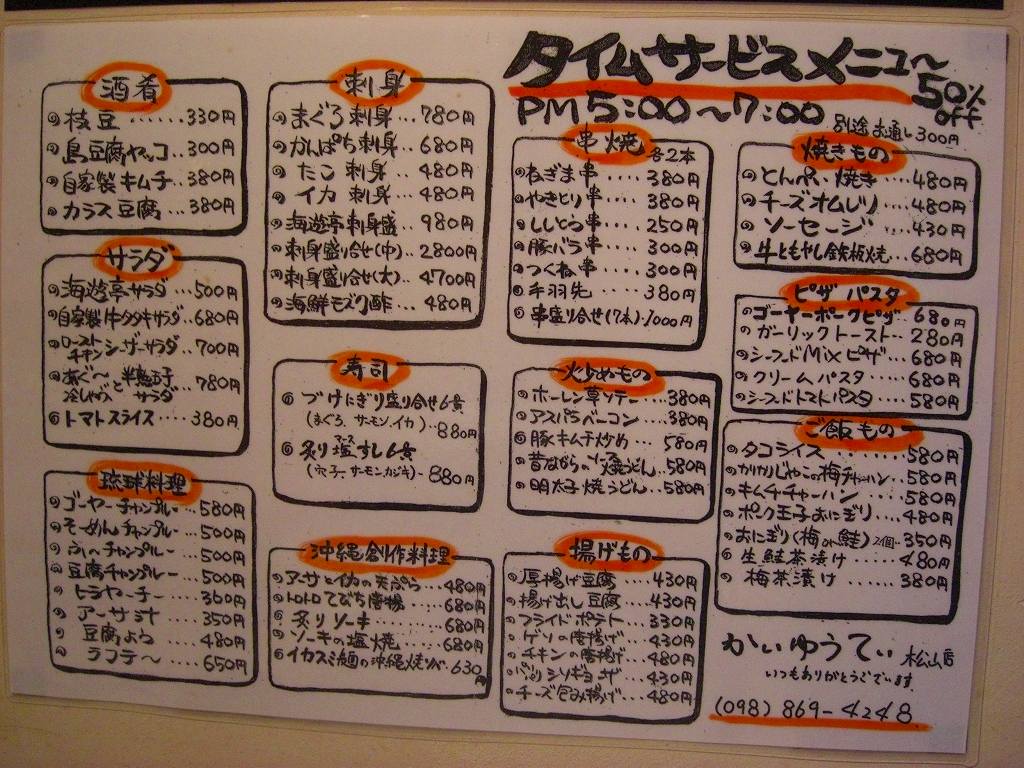 タイムサービスメニュ〜
50% off
PM 5:00〜7:00
別途お通し300円
酒肴
枝豆......330円
島豆腐ヤッコ..300円
自家製キムチ..380円
カラス豆腐...380円
サラダ
海遊亭サラダ..500円
自家製牛タタキサラダ..680円
ローストチキンシーザーサラダ..700円
あぐ〜冷しゃぶと半熟玉子サラダ..780円
トマトスライス....380円
琉球料理
ゴーヤーチャンプルー..580円
そーめんチャンプルー..500円
ふーチャンプルー..500円
豆腐チャンプルー...500円
ヒラヤーチー....300円
アーサ汁....350円
豆腐よう....480円
ラフテ〜....650円
刺身
まぐろ刺身...780円
かんぱち刺身..680円
たこ刺身..480円
イカ刺身...480円
海遊亭刺身盛..980円
刺身盛り合せ(中)..2800円
刺身盛り合せ(大)..4700円
海鮮モズク酢...480円
寿司
づけにぎり盛り合せ6貫
(まぐろ、サーモン、イカ)-880円
炙り塩ベースすし6貫
(穴子、サーモン、カジキ)-880円
沖縄創作料理
アーサとイカの天ぷら...480円
トロトロてびち唐揚....680円
炙りソーキ.....680円
ソーキの塩焼.....680円
イカスミ麺の沖縄焼ソバ..630円
串焼 各2本
ねぎま串....380円
やきとり串....380円
ししとう串....250円
豚バラ串....300円
つくね串....300円
手羽先....380円
串盛り合せ(7本)・1000円
炒めもの
ホーレン草ソテー...380円
アスパラベーコン...380円
豚キムチ炒め...580円
昔ながらのソース焼うどん..580円
明太子焼うどん...580円
揚げもの
厚揚げ豆腐...430円
揚げ出し豆腐...430円
フライドポテト...330円
ゲソの唐揚げ...430円
チキンの唐揚げ...480円
パリパリシソギョーザ...430円
チーズ包み揚げ...480円
焼きもの
とんぺい焼き....480円
チーズオムレツ....480円
ソーセージ....430円
牛ともやし鉄板焼...680円
ピザ パスタ
ゴーヤーポークピザ..680円
ガーリックトースト..280円
シーフードMixピザ..680円
クリームパスタ...680円
シーフードトマトパスタ..580円
ご飯もの
タコライス......580円
かりかりじゃこの梅チャーハン..580円
キムチチャーハン....580円
ポーク玉子おにぎり...480円
おにぎり(梅or鮭)2個-350円
生鮭茶漬け....480円
梅茶漬け....380円
かいゆうてい 松山店
いつもありがとうございます。
(098)869-4248